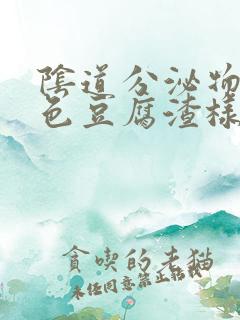 陰道分泌物
色豆腐渣樣
貪喫的老貓
未經同意禁止轉載